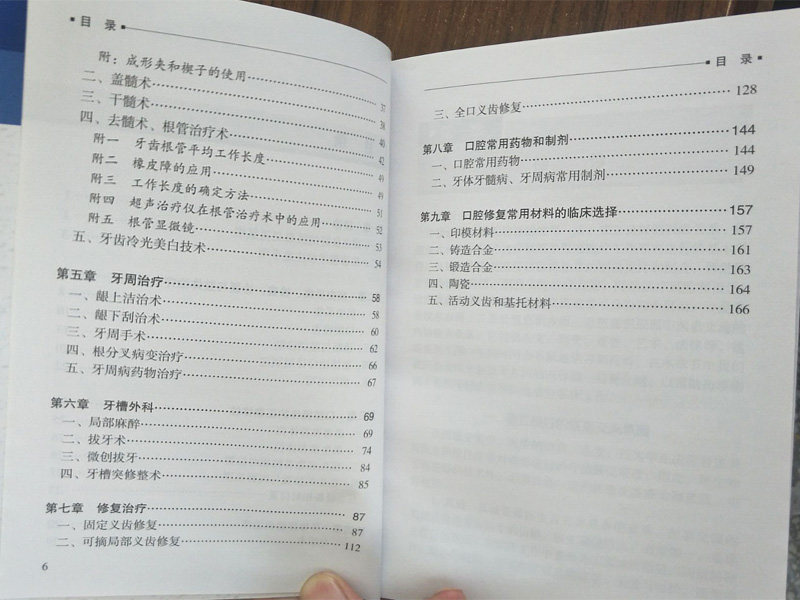 目 录
附：成形夹和楔子的使用 37
二、盖髓术 38
三、干髓术 40
四、去髓术、根管治疗术 42
附一 牙齿根管平均工作长度 49
附二 橡皮障的应用 49
附三 工作长度的确定方法 51
附四 超声治疗仪在根管治疗术中的应用 52
附五 根管显微镜 53
五、牙齿冷光美白技术 54
第五章 牙周治疗 58
一、龈上洁治术 58
二、龈下刮治术 60
三、牙周手术 62
四、根分叉病变治疗 66
五、牙周病药物治疗 67
第六章 牙槽外科 69
一、局部麻醉 69
二、拔牙术 74
三、微创拔牙 84
四、牙槽突修整术 85
第七章 修复治疗 87
一、固定义齿修复 87
二、可摘局部义齿修复 112
6
目 录
三、全口义齿修复 128
第八章 口腔常用药物和制剂 144
一、口腔常用药物 144
二、牙体牙髓病、牙周病常用制剂 149
第九章 口腔修复常用材料的临床选择 157
一、印模材料 157
二、铸造合金 161
三、锻造合金 163
四、陶瓷 164
五、活动义齿和基托材料 166